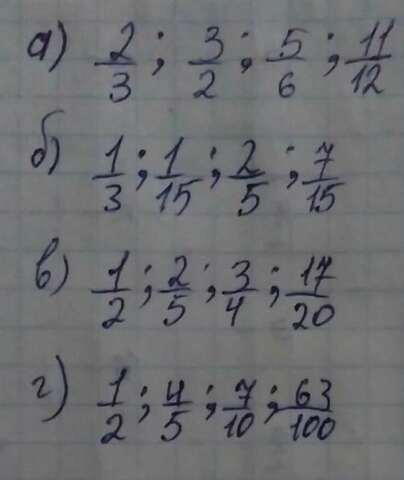 а) 2/3 ; 3/2 ; 5/6 ; 11/12
б) 1/3 ; 1/15 ; 2/5 ; 7/15
в) 1/2 ; 2/5 ; 3/4 ; 17/20
г) 1/2 ; 4/5 ; 7/10 ; 63/100